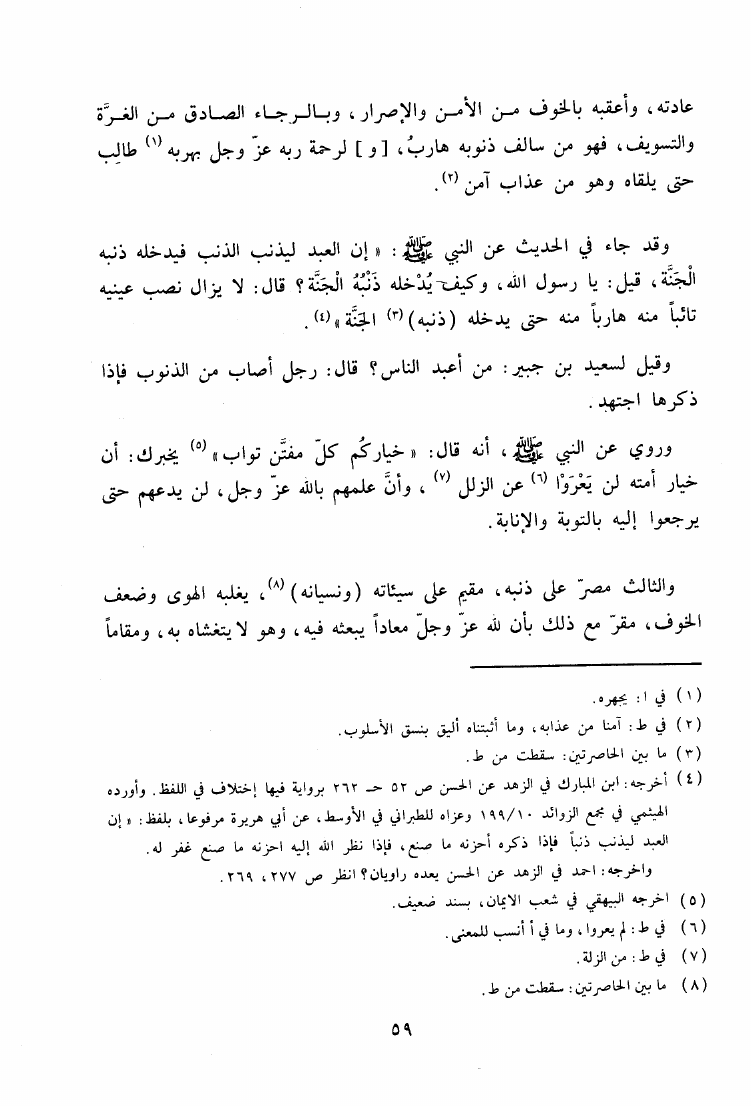 عادته، وأعقبه بالخوف مـن الأمـن والإصرار، وبالـرجـاء الصادق مـن الغـرَّة
والتسويف، فهو من سالف ذنوبه هاربُ، [و] لرحمة ربه عزّ وجل بهربه (١) طالِب
حتى يلقاه وهو من عذاب آمن (٢).
وقد جاء في الحديث عن النبي ﷺ: « إن العبد ليذنب الذنب فيدخله ذنبه
الْجَنَّة، قيل: يا رسول الله، وكيف يُدْخله ذَنْبُهُ الْجَنَّة؟ قال: لا يزال نصب عينيه
تائباً منه هارباً منه حتى يدخله (ذنبه) (٣) الجَنَّة » (٤).
وقيل لسعيد بن جبير: من أعبد الناس؟ قال: رجل أصاب من الذنوب فإذا
ذكرها اجتهد.
وروي عن النبي ﷺ، أنه قال: « خياركُم كلّ مفتَّن تواب » (٥) يخبرك: أن
خيار أمته لن يَعْرَوْا (٦) عن الزلل (٧)، وأنَّ علمهم بالله عزّ وجل، لن يدعهم حتى
يرجعوا إليه بالتوبة والإنابة.
والثالث مصرّ على ذنبه، مقيم على سيئاته (ونسيانه) (٨)، يغلبه الهوى وضعف
الخوف، مقرّ مع ذلك بأن لله عزّ وجلّ معاداً يبعثه فيه، وهو لا يتغشاه به، ومقاماً
(١) في ا: يجهره.
(٢) في ط: آمنا من عذابه، وما أثبتناه أليق بنسق الأسلوب.
(٣) ما بين الحاصرتين: سقطت من ط.
(٤) أخرجه: ابن المبارك في الزهد عن الحسن ص ٥٢ حـ ٢٦٢ برواية فيها إختلاف في اللفظ. وأورده
الهيثمي في مجمع الزوائد ١٩٩/١٠ وعزاه للطبراني في الأوسط، عن أبي هريرة مرفوعا، بلفظ: « إن
العبد ليذنب ذنباً فإذا ذكره أحزنه ما صنع، فإذا نظر الله إليه احزنه ما صنع غفر له.
واخرجه: احمد في الزهد عن الحسن يعده راويان؟ انظر ص ٢٧٧، ٢٦٩.
(٥) اخرجه البيهقي في شعب الايمان، بسند ضعيف.
(٦) في ط: لم يعروا، وما في أ أنسب للمعنى.
(٧) في ط: من الزلة.
(٨) ما بين الحاصرتين: سقطت من ط.
٥٩